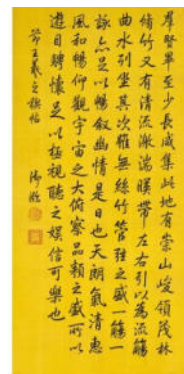 群賢畢至少長咸集此地有崇山峻領茂林
脩竹又有清流激湍暎帶左右引以為流觴
曲水列坐其次雖無絲竹管弦之盛一觴一
詠亦足以暢敘幽情是日也天朗氣清惠
風和暢仰觀宇宙之大俯察品類之盛所以
遊目騁懷足以極視聽之娛信可樂也
節王羲之禊帖 御臨